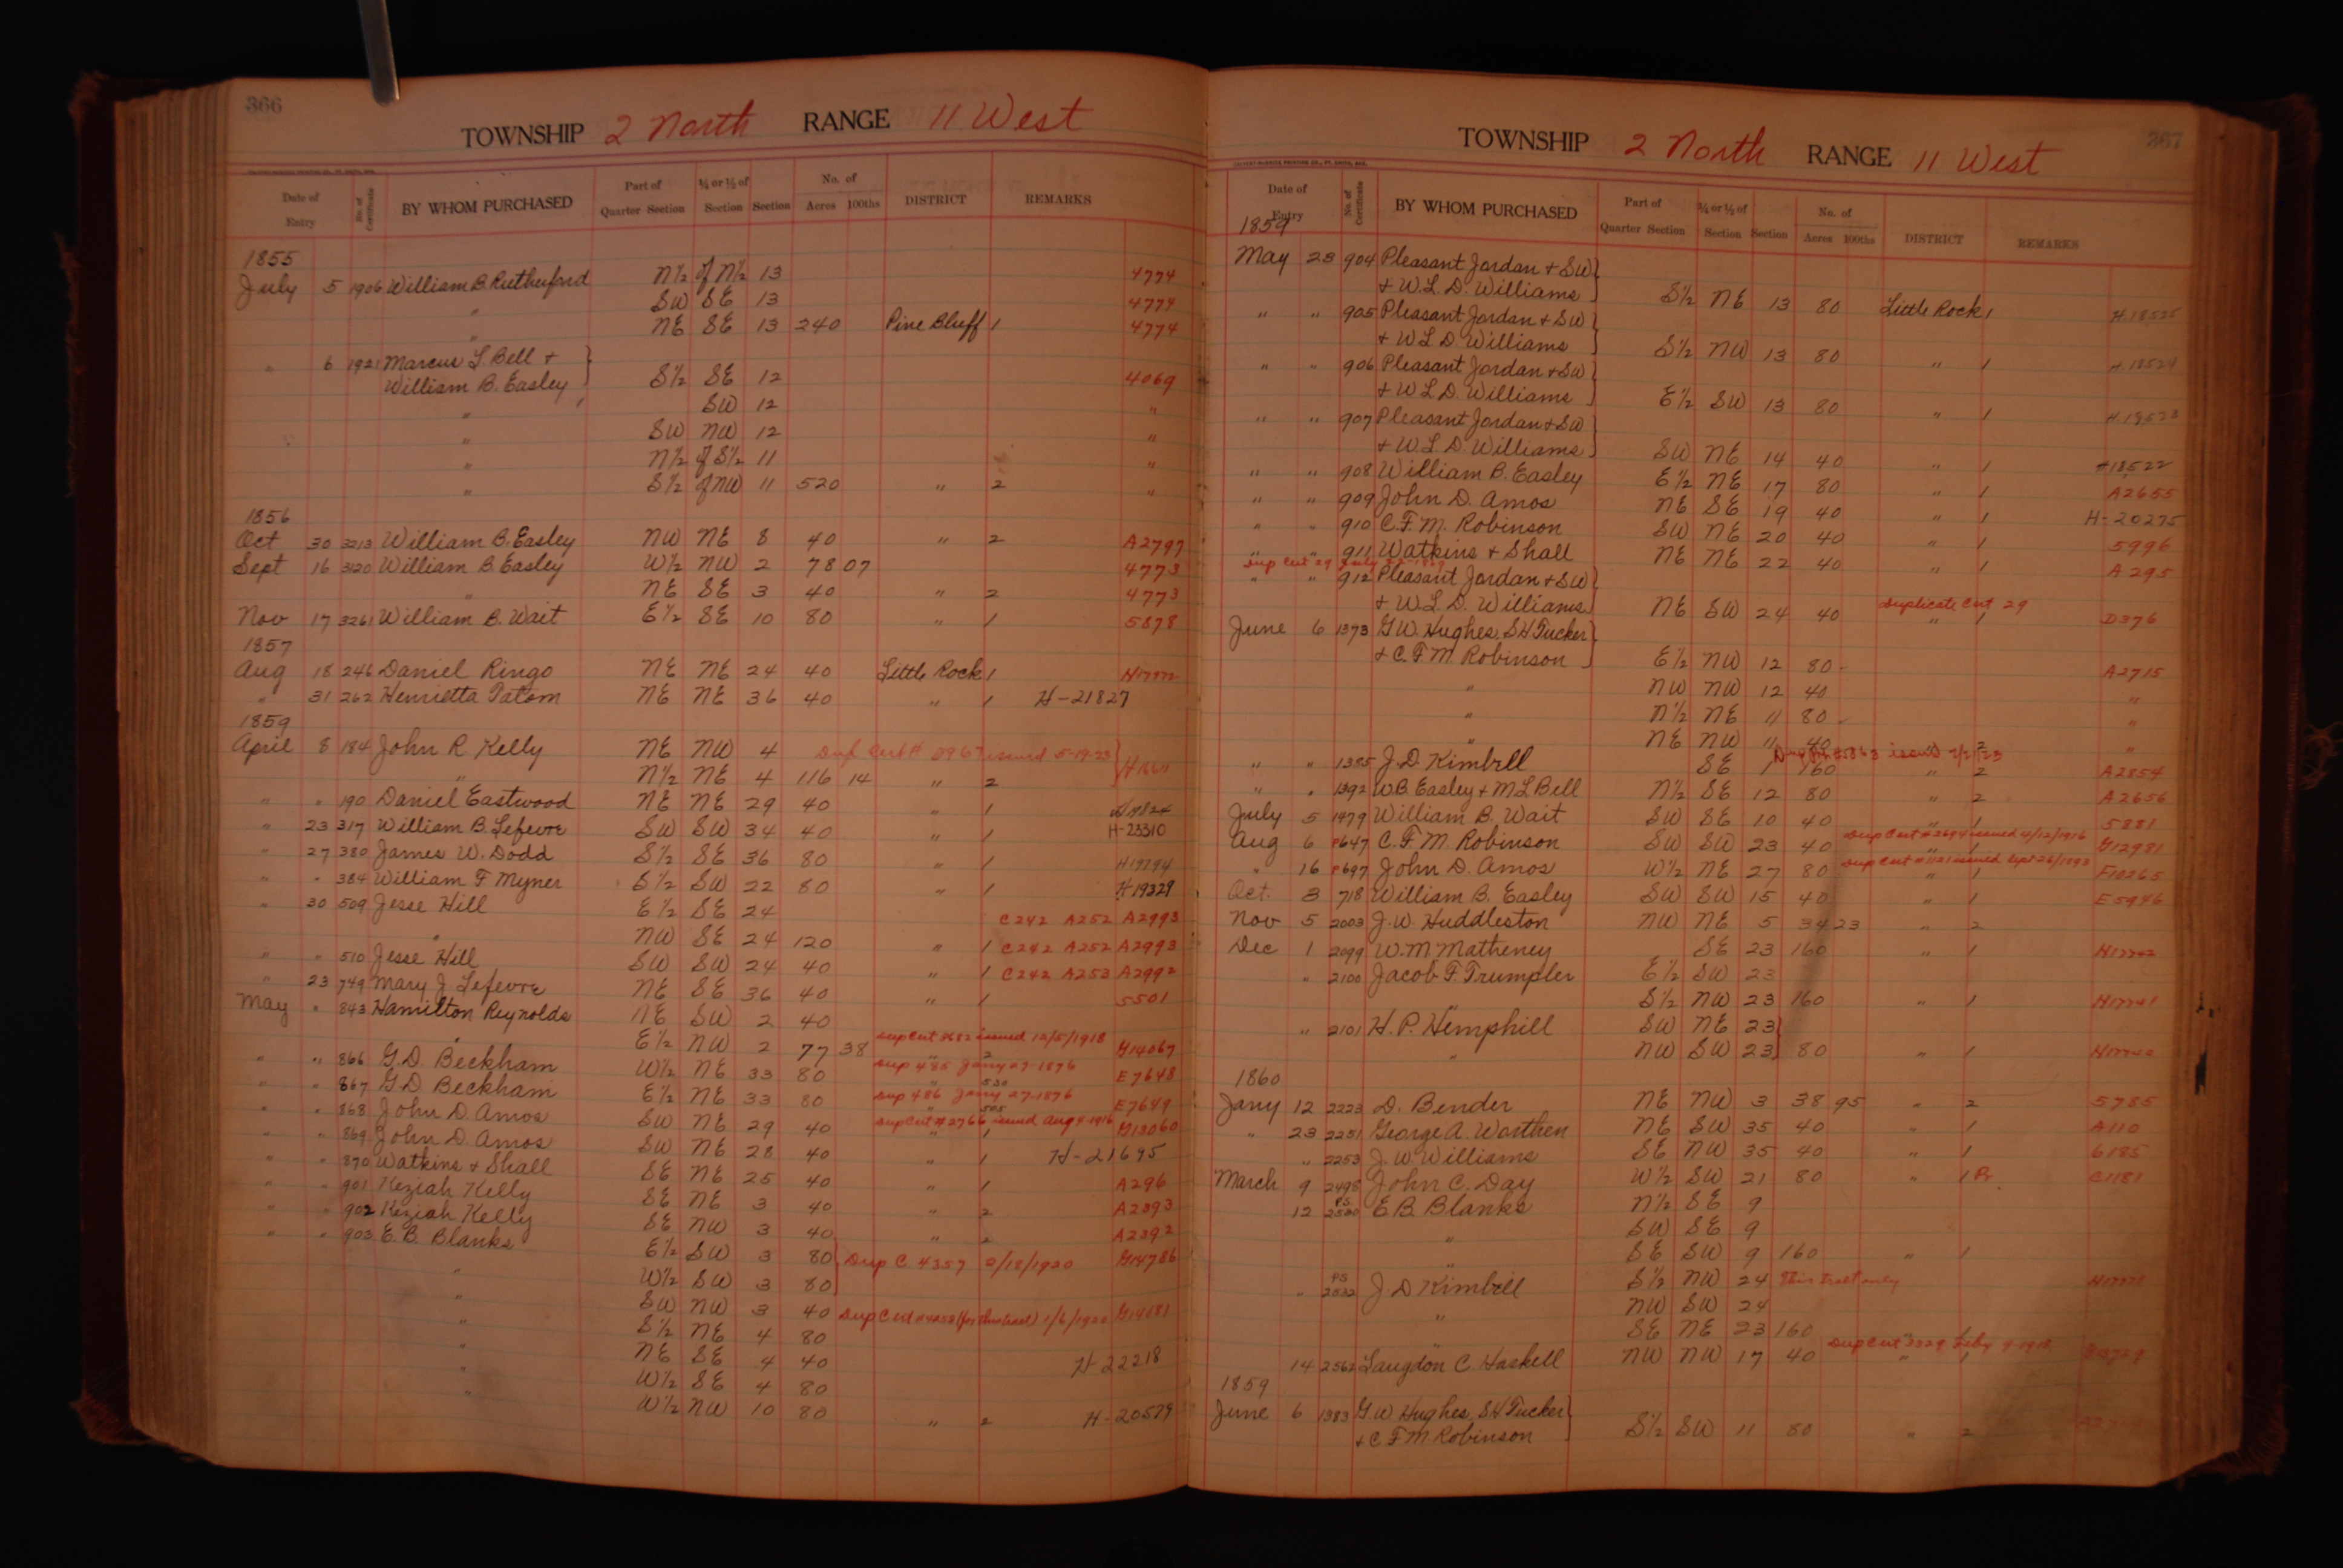 366
TOWNSHIP 2 North RANGE 11 West
Date of Entry No. of Certificate BY WHOM PURCHASED Part of Quarter Section ¼ or ½ of Section Section No. of Acres 100ths DISTRICT REMARKS
1855
July 5 1906 William B. Rutherford N½ of N½ 13 4774
" SW SE 13 4774
" NE SE 13 240 Pine Bluff 1 4774
" 6 1921 Marcus L. Bell +
William B. Easley } S½ SE 12 4069
" SW 12 "
" SW NW 12 "
" N½ of S½ 11 "
" S½ of NW 11 520 " 2 "
1856
Oct 30 3213 William B. Easley NW NE 8 40 " 2 A2797
Sept 16 3120 William B. Easley W½ NW 2 78 07 4773
" NE SE 3 40 " 2 4773
Nov 17 3261 William B. Wait E½ SE 10 80 " 1 5878
1857
Aug 18 246 Daniel Ringo NE NE 24 40 Little Rock 1
" 31 262 Henrietta Patom NE NE 36 40 " 1 H-21827
1859
April 8 184 John R. Kelly NE NW 4 Dup Cert # issued 5-19-23
" N½ NE 4 116 14 " 2
" " 190 Daniel Eastwood NE NE 29 40 " 1
" 23 317 William B. Lefevre SW SW 34 40 " 1 H-23310
" 27 380 James W. Dodd S½ SE 36 80 " 1 H17794
" " 384 William F. Myner S½ SW 22 80 " 1 H19329
" 30 509 Jesse Hill E½ SE 24 C242 A252 A2993
" NW SE 24 120 " 1 C242 A252 A2993
" " 510 Jesse Hill SW SW 24 40 " 1 C242 A253 A2992
" 23 749 Mary J. Lefevre NE SE 36 40 " 1 5501
May " 843 Hamilton Reynolds NE SW 2 40
" E½ NW 2 77 38 Dup Cert 3682 issued 12/5/1918 " 2 G14067
" " 866 G.D. Beckham W½ NE 33 80 Dup 485 Jany 27-1876 E7648
" " 867 G.D. Beckham E½ NE 33 80 Dup 486 Jany 27-1876 E7649
" " 868 John D. Amos SW NE 29 40 Dup Cert # 2766 issued Aug 4-1916 " 1 G13060
" " 869 John D. Amos SW NE 28 40 " 1 H-21695
" " 870 Watkins + Shall SE NE 25 40 " 1 A296
" " 901 Keziah Kelly SE NE 3 40 " 2 A2393
" " 902 Keziah Kelly SE NW 3 40 " 2 A2392
" " 903 E.B. Blanks E½ SW 3 80 Dup C. 4357 /18/1920 G14786
" W½ SW 3 80
" SW NW 3 40 Dup Cert (for this tract) 1/6/1920
" S½ NE 4 80
" NE SE 4 40 H-22218
" W½ SE 4 80
" W½ NW 10 80 " 2 H-20579
367
TOWNSHIP 2 North RANGE 11 West
Date of Entry No. of Certificate BY WHOM PURCHASED Part of Quarter Section ¼ or ½ of Section Section No. of Acres 100ths DISTRICT REMARKS
1859
May 23 904 Pleasant Jordan + SW
+ W.L.D. Williams } S½ NE 13 80 Little Rock 1 H.18525
" " 905 Pleasant Jordan + SW
+ W.L.D. Williams } S½ NW 13 80 " 1 H.18524
" " 906 Pleasant Jordan + SW
+ W.L.D. Williams } E½ SW 13 80 " 1 H.18523
" " 907 Pleasant Jordan + SW
+ W.L.D. Williams } SW NE 14 40 " 1 H18522
" " 908 William B. Easley E½ NE 17 80 " 1 A2655
" " 909 John D. Amos NE SE 19 40 " 1 H-20275
" " 910 C.F.M. Robinson SW NE 20 40 " 1 5996
" " 911 Watkins + Shall NE NE 22 40 " 1 A295
Dup Cert 29 July
" " 912 Pleasant Jordan + SW
+ W.L.D. Williams } NE SW 24 40 Duplicate Cert 29 " 1 D376
June 6 1373 G.W. Hughes, S.H. Tucker
+ C.F.M. Robinson } E½ NW 12 80 A2715
" NW NW 12 40 "
" N½ NE 11 80 "
" NE NW 11 40 " 2 "
" " 1385 J.D. Kimbell SE 1 160 issued 7/2/23 " 2 A2854
" " 1392 W.B. Easley + M L Bell N½ SE 12 80 " 2 A2656
July 5 1479 William B. Wait SW SE 10 40 " 1 5881
Aug 6 1647 C.F.M. Robinson SW SW 23 40 Dup Cert # 2694 issued 4/12/1916 " 1 G12981
" 16 1697 John D. Amos W½ NE 27 80 Dup Cert # 1121 issued Sept 26/1893 " 1 F10265
Oct. 3 718 William B. Easley SW SW 15 40 " 1 E5946
Nov 5 2003 J.W. Huddleston NW NE 5 34 23 " 2
Dec 1 2099 W.M. Matheney SE 23 160 " 1 H17742
" 2100 Jacob F. Trumpler E½ SW 23
" S½ NW 23 160 " 1 H17741
" 2101 H.P. Hemphill SW NE 23
" NW SW 23 80 " 1 H17740
1860
Jany 12 2223 D. Bender NE NW 3 38 95 " 2 5785
" 23 2251 George A. Worthen NE SW 35 40 " 1 A110
" 2253 J.W. Williams SE NW 35 40 " 1 6185
March 9 2498 John C. Day W½ SW 21 80 " 1 Pr. C1181
12 PS 2530 E.B. Blanks N½ SE 9
" SW SE 9
" SE SW 9 160 " 1
" PS 2532 J.D. Kimbell S½ NW 24 This tract only
" NW SW 24
" SE NE 23 160 " 1
14 2562 Langdon C. Haskell NW NW 17 40 Dup Cert 3329 Feby 9-1918 " 1 G13729
1859
June 6 1383 G.W. Hughes, S.H. Tucker
+ C.F.M. Robinson } S½ SW 11 80 " 2